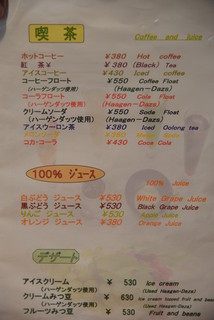 喫 茶 Coffee and juice
ホットコーヒー ¥380 Hot coffee
紅 茶 ¥380 (Black) Tea
アイスコーヒー ¥430 Iced coffee
コーヒーフロート ¥550 Coffee Float
(ハーゲンダッツ使用) (Haagen-Dazs)
コーラフロート ¥550 Cola Float
(ハーゲンダッツ使用) (Haagen-Dazs)
クリームソーダ ¥550 Soda Float
(ハーゲンダッツ使用) (Haagen-Dazs)
アイスウーロン茶 ¥380 Iced Oolong tea
¥380 Melon Soda
コカ・コーラ ¥430 Coca Cola
100% ジュース 100% Juice
白ぶどう ジュース ¥530 White Grape Juice
黒ぶどう ジュース ¥530 Black Grape Juice
りんご ジュース ¥530 Apple Juice
オレンジ ジュース ¥380 Orange Juice
デザート
アイスクリーム ¥ 530 Ice cream
(ハーゲンダッツ使用) (Used Haagen-Dazs)
クリームみつ豆 ¥ 630 Ice cream boxed fruit and beans
(ハーゲンダッツ使用) (Used Haagen-Dazs)
フルーツみつ豆 ¥ 530 Fruit and beans